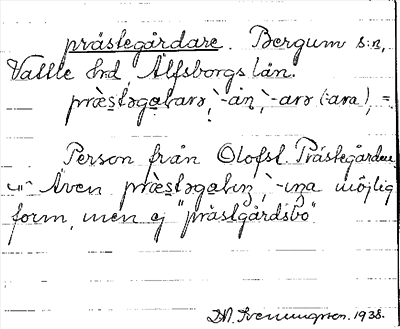 prästegårdare. Bergum s:n,
Vättle hrd, Älfsborgs län.
præstəgaʟarə, -ån, -arə (-ara), =.
Person från Olofst. Prästegården
Även præstəgaʟɪŋ, -ɪŋa möjlig
form, men ej "prästgårdsbo".
D.N. Svenningson. 1938.